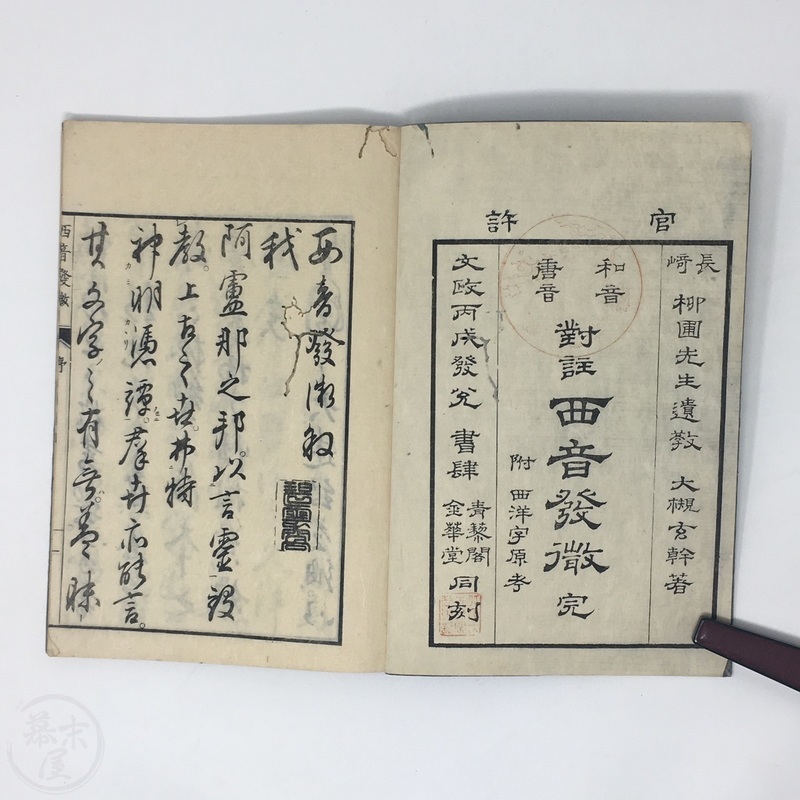 官許
長崎 柳圃先生遺教 大槻玄幹著
和音
唐音
對註 西音發微 完
附 西洋字原考
文政丙戌發兌 書肆 青藜閣 金華堂 同刻
西音發微敘
我
阿盧那之邦。以言靈設
教。上古之世。弗特
神明憑譚。羣卉亦能言。
其文字之有無。蓋昧
西音發微 序
幕末屋